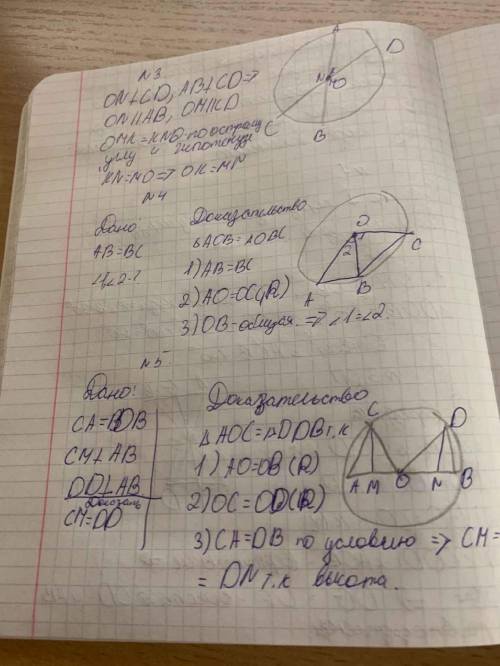 N3
ON⊥CD, AB⊥CD=>
ON||AB, OM||CD
OMK=KNO-по острому
углу и гипотенузе
KN=NO=> OK=MN
A
D
N
O
C
B
N4
Дано
AB=BC
∠1,∠2-?
Доказательство
△AOB=△OBC
1) AB=BC
2) AO=OC(R)
3) OB-общая. => ∠1=∠2.
O
1
2
C
A
B
N5
Дано:
CA=DB
CM⊥AB
DD⊥AB
Доказать
CM=DD
Доказательство
△AOC=△DDB т.к
1) AO=OB (R)
2) OC=OD(R)
3) CA=DB по условию => CM=
= DN т.к высота.
C
D
A M O N B